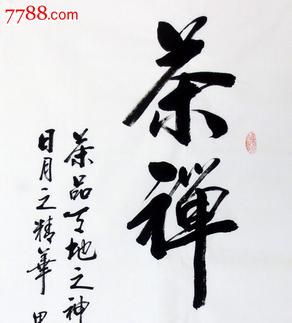 7788.com
茶禅
茶品天地之神
日月之精華